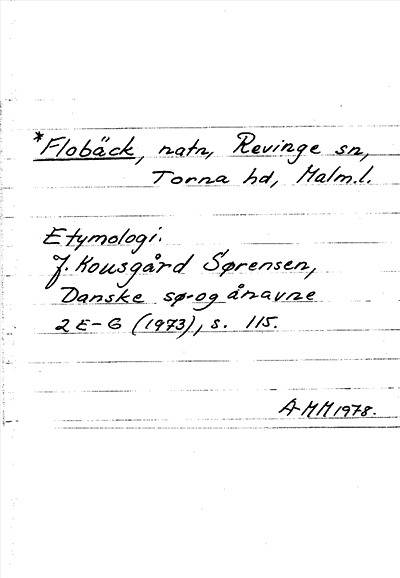 *Flobäck, natn, Revinge sn,
Torna hd, Malm.l.
Etymologi.
J. Kousgård Sørensen,
Danske sø- og ånavne
2 E-G (1973), s. 115.
A-MM 1978.